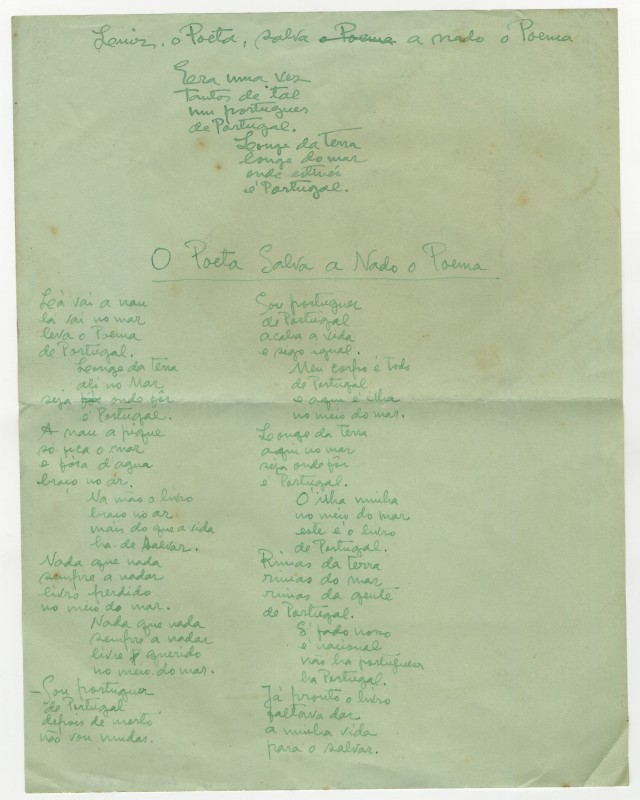 Luiz, o Poeta, salva o Poema a nado o Poema
Era uma vez
Tantos de tal
um portuguez
de Portugal.
Longe da Terra
longe do mar
onde estiver
é Portugal.
O Poeta Salva a Nado o Poema
Lá vai a nau
lá vai no mar
leva o Poema
de Portugal.
Longe da terra
ali no Mar
seja onde fôr
é Portugal.
A nau a pique
só fica o mar
e fóra d'agua
braço no ar.
Na mão o livro
braço no ar
mais do que a vida
ha-de salvar.
Nada que nada
sempre a nadar
livro perdido
no meio do mar.
Nada que nada
sempre a nadar
livro querido
no meio do mar.
– Sou portuguez
de Portugal
depois de morto
não vou mudar.
Sou portuguez
de Portugal
acaba a vida
e sigo igual.
Meu corpo é Todo
de Portugal
e aqui é ilha
no meio do mar.
Longe da Terra
aqui no mar
seja onde fôr
é Portugal.
O' ilha minha
no meio do mar
este é o livro
de Portugal.
Rimas da terra
rimas do mar
rimas da gente
de Portugal.
E' fado nosso
é nacional
não ha portuguezes
ha Portugal.
Já pronto o livro
faltava dar
a minha vida
para o salvar.